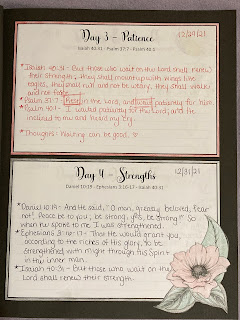 Day 3 - Patience
12/29/21
Isaiah 40:31 - Psalm 37:7 - Psalm 40:1
*Isaiah 40:31 - But those who wait on the Lord shall renew
their strength; they shall mount up with wings like
eagles, they shall run and not be weary, they shall walk
and not faint.
*Psalm 37:7 - Rest in the Lord, and wait patiently for him.
*Psalm 40:1 - I waited patiently for the Lord; and He
inclined to me and heard my cry.
*Thoughts: Waiting can be good.
Day 4 - Strengths
12/31/21
Daniel 10:19 - Ephesians 3:16-17 - Isaiah 40:31
*Daniel 10:19 - And He said, "O man, greatly beloved, fear
not! Peace be to you; be strong, yes, be strong!" So
when he spoke to me I was strengthened.
*Ephesians 3:16-17 - That He would grant you,
according to the riches of His glory, to be
strengthened with might through His Spirit
in the inner man.
*Isaiah 40:31 - But those who wait on the
Lord shall renew their strength.